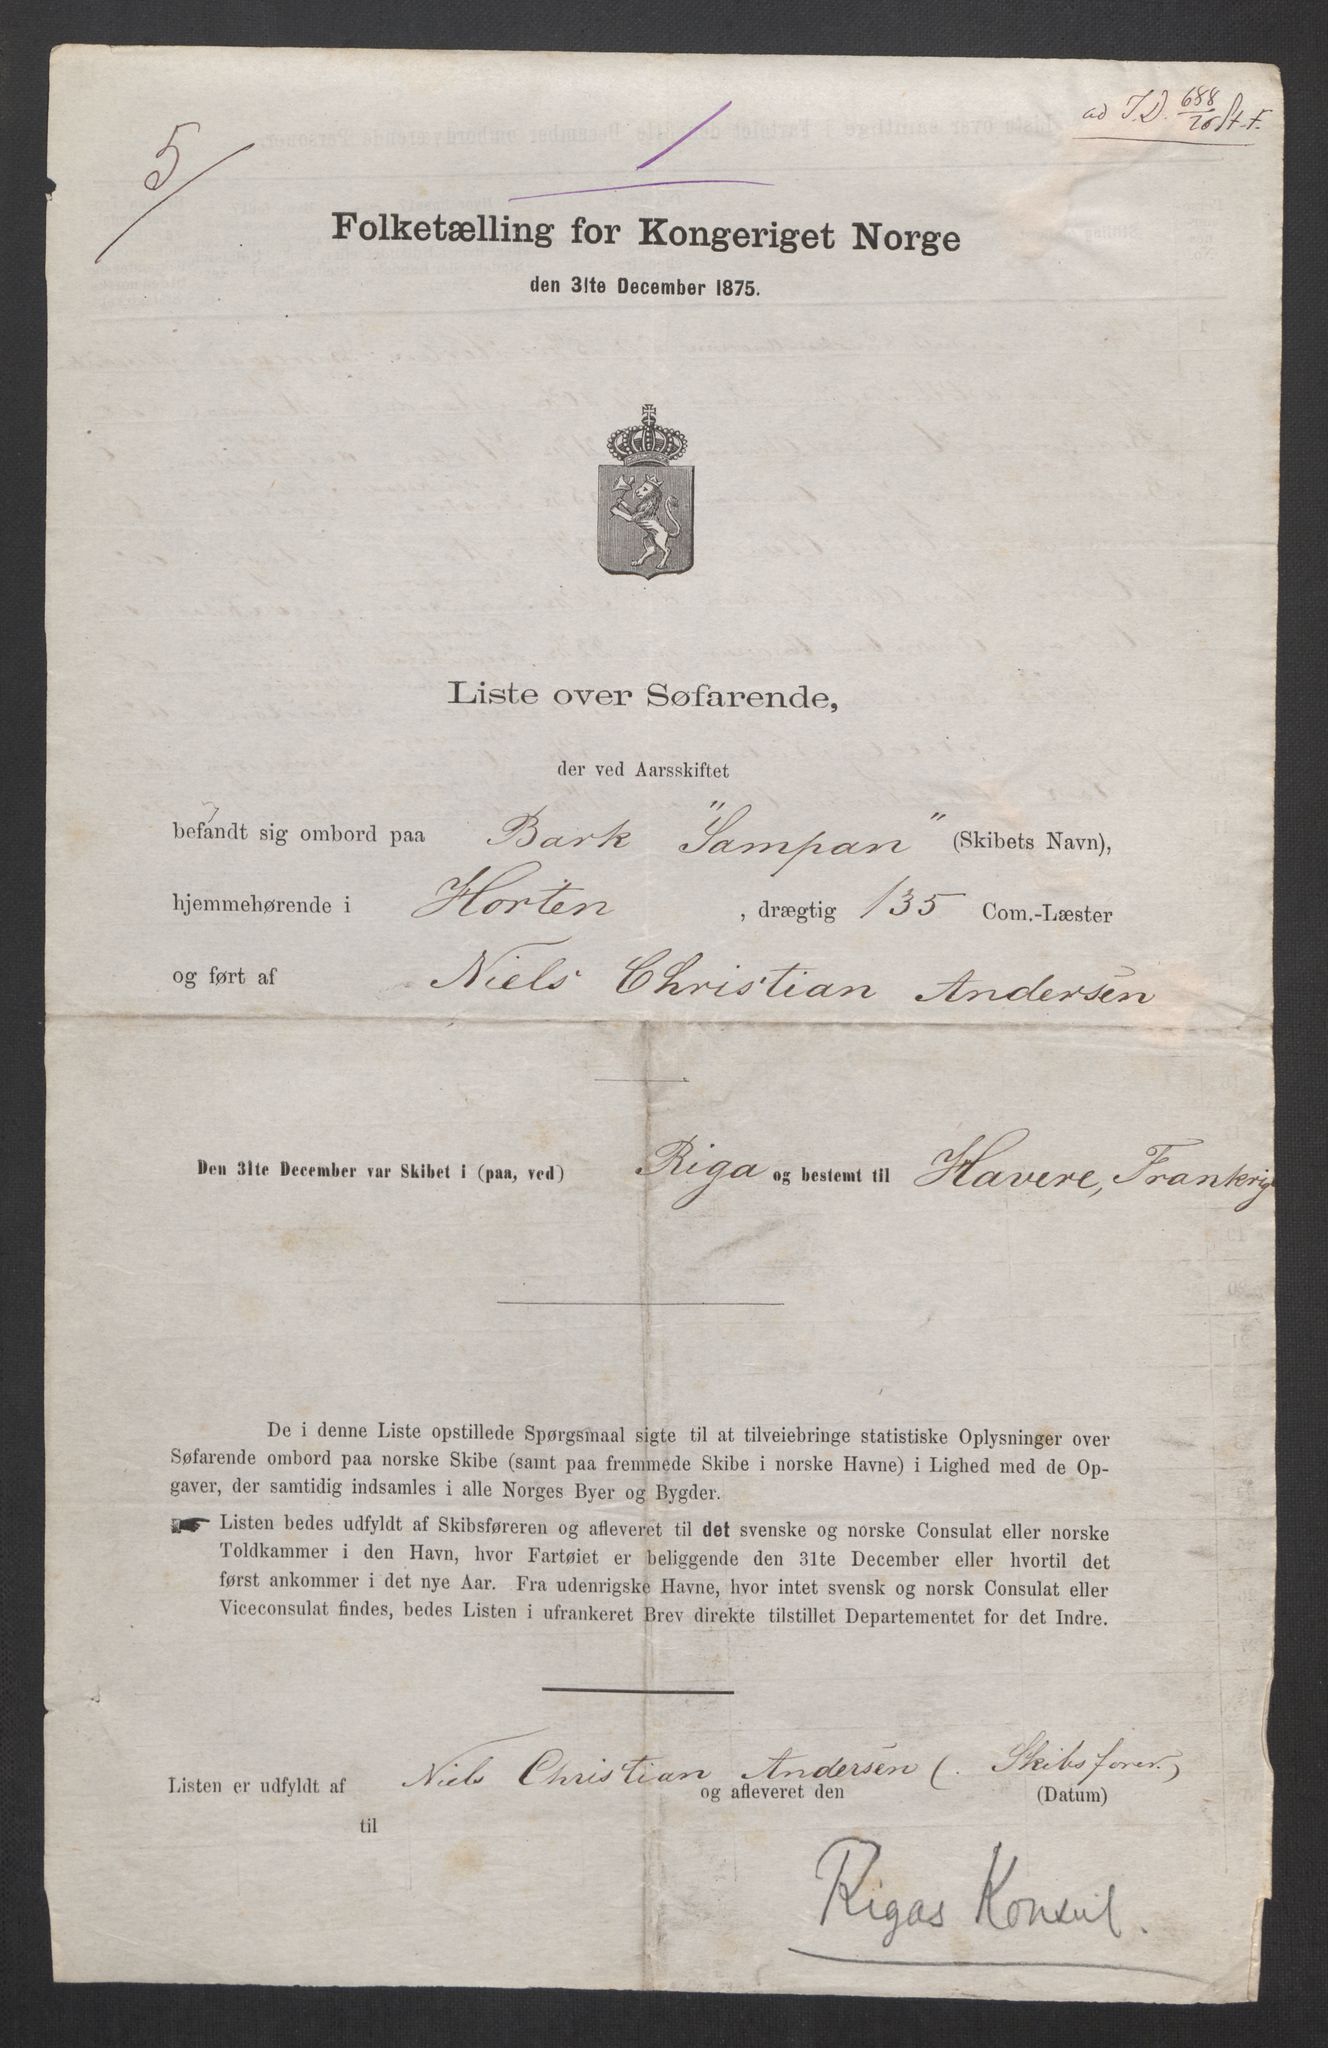 5
ad I.D. 688/76 St. F.
Folketælling for Kongeriget Norge
den 31te December 1875.
Liste over Søfarende,
der ved Aarsskiftet
befandt sig ombord paa Bark "Sampan" (Skibets Navn),
hjemmehørende i Horten, drægtig 135 Com.-Læster
og ført af Niels Christian Andersen
Den 31te December var Skibet i (paa, ved) Riga og bestemt til Havere, Frankrig
De i denne Liste opstillede Spørgsmaal sigte til at tilveiebringe statistiske Oplysninger over
Søfarende ombord paa norske Skibe (samt paa fremmede Skibe i norske Havne) i Lighed med de Op-
gaver, der samtidig indsamles i alle Norges Byer og Bygder.
Listen bedes udfyldt af Skibsføreren og afleveret til det svenske og norske Consulat eller norske
Toldkammer i den Havn, hvor Fartøiet er beliggende den 31te December eller hvortil det
først ankommer i det nye Aar. Fra udenrigske Havne, hvor intet svensk og norsk Consulat eller
Viceconsulat findes, bedes Listen i ufrankeret Brev direkte tilstillet Departementet for det Indre.
Listen er udfyldt af Niels Christian Andersen (. Skibsforer.)
og afleveret den (Datum)
til
Rigas Konsul.